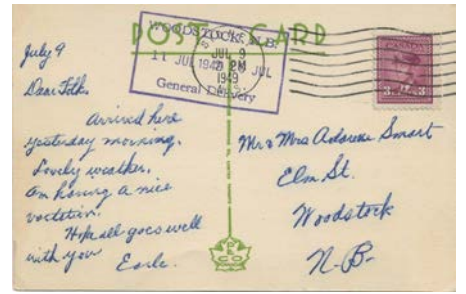 POST CARD
WOODSTOCK, N.B.
11 JUL 1949 JUL
General Delivery
JUL 9
PM
1949
CANADA
3 3
July 9
Dear Folks,
Arrived here
yesterday morning.
Lovely weather.
Am having a nice
vacation.
Hope all goes well
with you
Earle.
Mr & Mrs Smart
Elm St.
Woodstock
N-B-
PECO